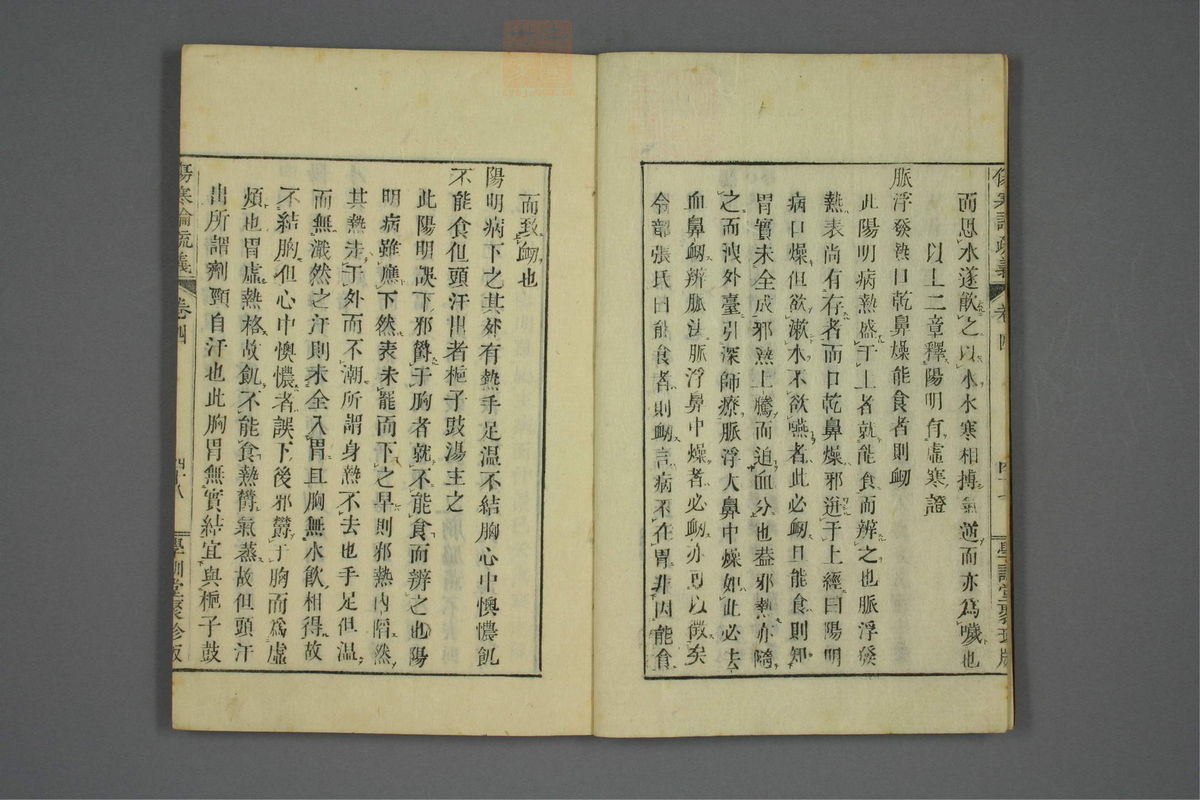 傷寒論疏義 卷四 四十七 學訓堂聚珍版
而思水遂飮之以水水寒相搏氣逆而亦爲噦也
以上二章釋陽明有虛寒證
脈浮發熱口乾鼻燥能食者則衄
此陽明病熱盛于上者就能食而辨之也脈浮發
熱表尚有存者而口乾鼻燥邪迸于上經曰陽明
病口燥但欲漱水不欲嚥者此必衄且能食則知
胃實未全成邪熱上騰而迫血分也葢邪熱亦隨
之而洩外臺引深師療脈浮大鼻中燥如此必去
血鼻衄辨脈法脈浮鼻中燥者必衄亦可以徵矣
令部張氏曰能食者則衄言病不在胃非因能食
而致衄也
陽明病下之其外有熱手足溫不結胸心中懊憹飢
不能食但頭汗出者梔子豉湯主之
此陽明誤下邪欝于胸者就不能食而辨之也陽
明病雖應下然表未罷而下之早則邪熱內陷然
其熱未于外而不潮所謂身熱不去也手足但溫
而無濈然之汗則未全入胃且胸無水飮相得故
不結胸但心中懊憹者誤下後邪欝于胸而爲虛
煩也胃虛熱格故飢不能食熱欝氣蒸故但頭汗
出所謂劑頸自汗也此胸胃無實結宜與梔子豉
傷寒論疏義 卷四 四十八 學訓堂聚珍版